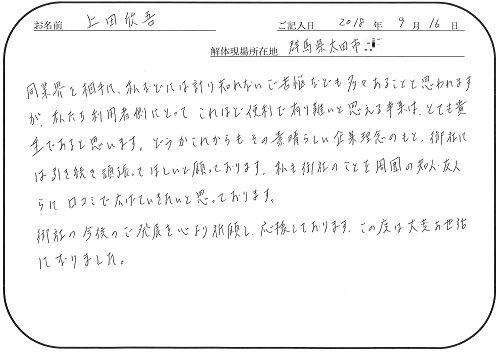 お名前 上田欣吾 ご記入日 2018 年 9 月 16 日
解体現場所在地 群馬県太田市
同業界を相手に、私などには計り知れないご苦悩なども多々あることと思われます
が、私たち利用者側にとって、これほど便利で有り難いと思える事業は、とても貴
重であると思います。どうかこれからもその素晴らしい企業理念のもと、御社に
は引き続き頑張ってほしいと願っております。私も御社のことを周囲の知人・友人
らに口コミで広げていきたいと思っております。
御社の今後のご発展を心より祈願し、応援しております。この度は大変お世話
になりました。